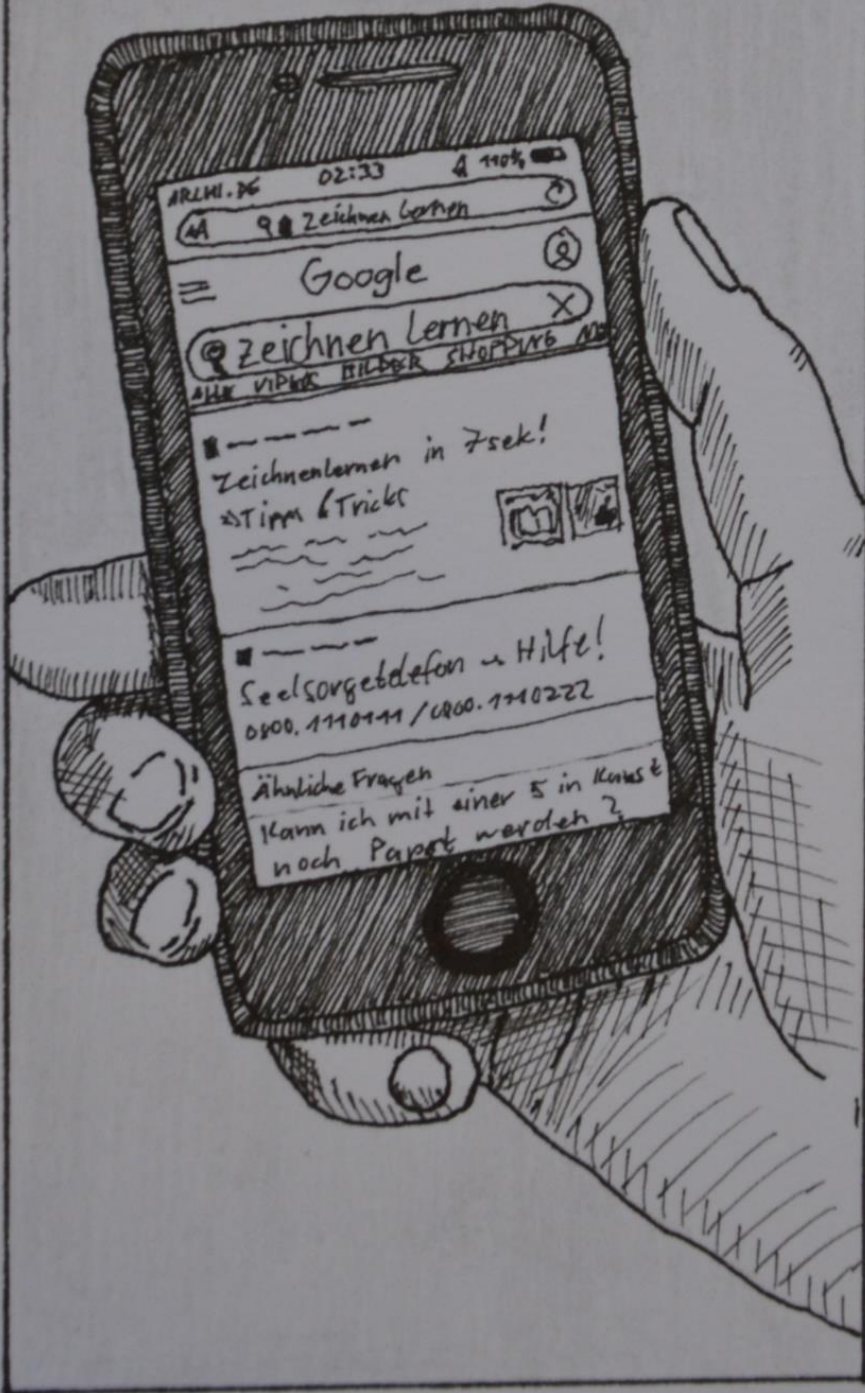 ARCHI.DE 02:33 110%
AA Zeichnen Lernen
Google
Zeichnen Lernen X
ALLE VIDEOS BILDER SHOPPING
Zeichnenlernen in 7sek!
Tipps & Tricks
Seelsorgetelefon Hilfe!
0800.1110111 / 0800.1110222
Ähnliche Fragen
Kann ich mit einer 5 in Kunst
noch Papst werden?